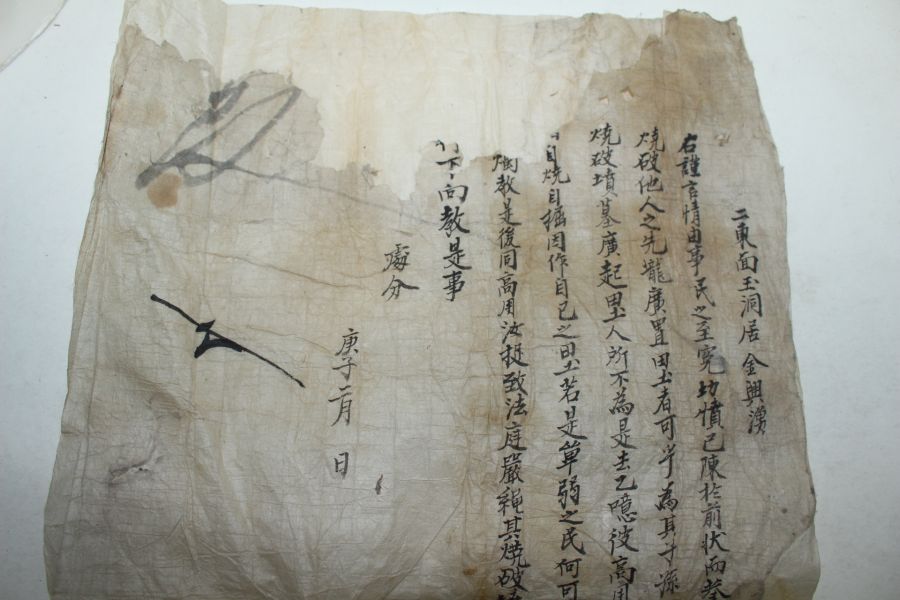 二東面玉洞居 金興漢
右謹言情由事民之至寃切憤已陳於前狀而蒙
燒破他人之先壠廣置田土者可乎為其子孫
燒破墳墓廣起田土人所不為是去乙噫彼高用
自燒自掘因作自己之田土若是單弱之民何可
教是後同高用汝捉致法庭嚴繩其燒破
下向教是事
處分
庚子二月 日